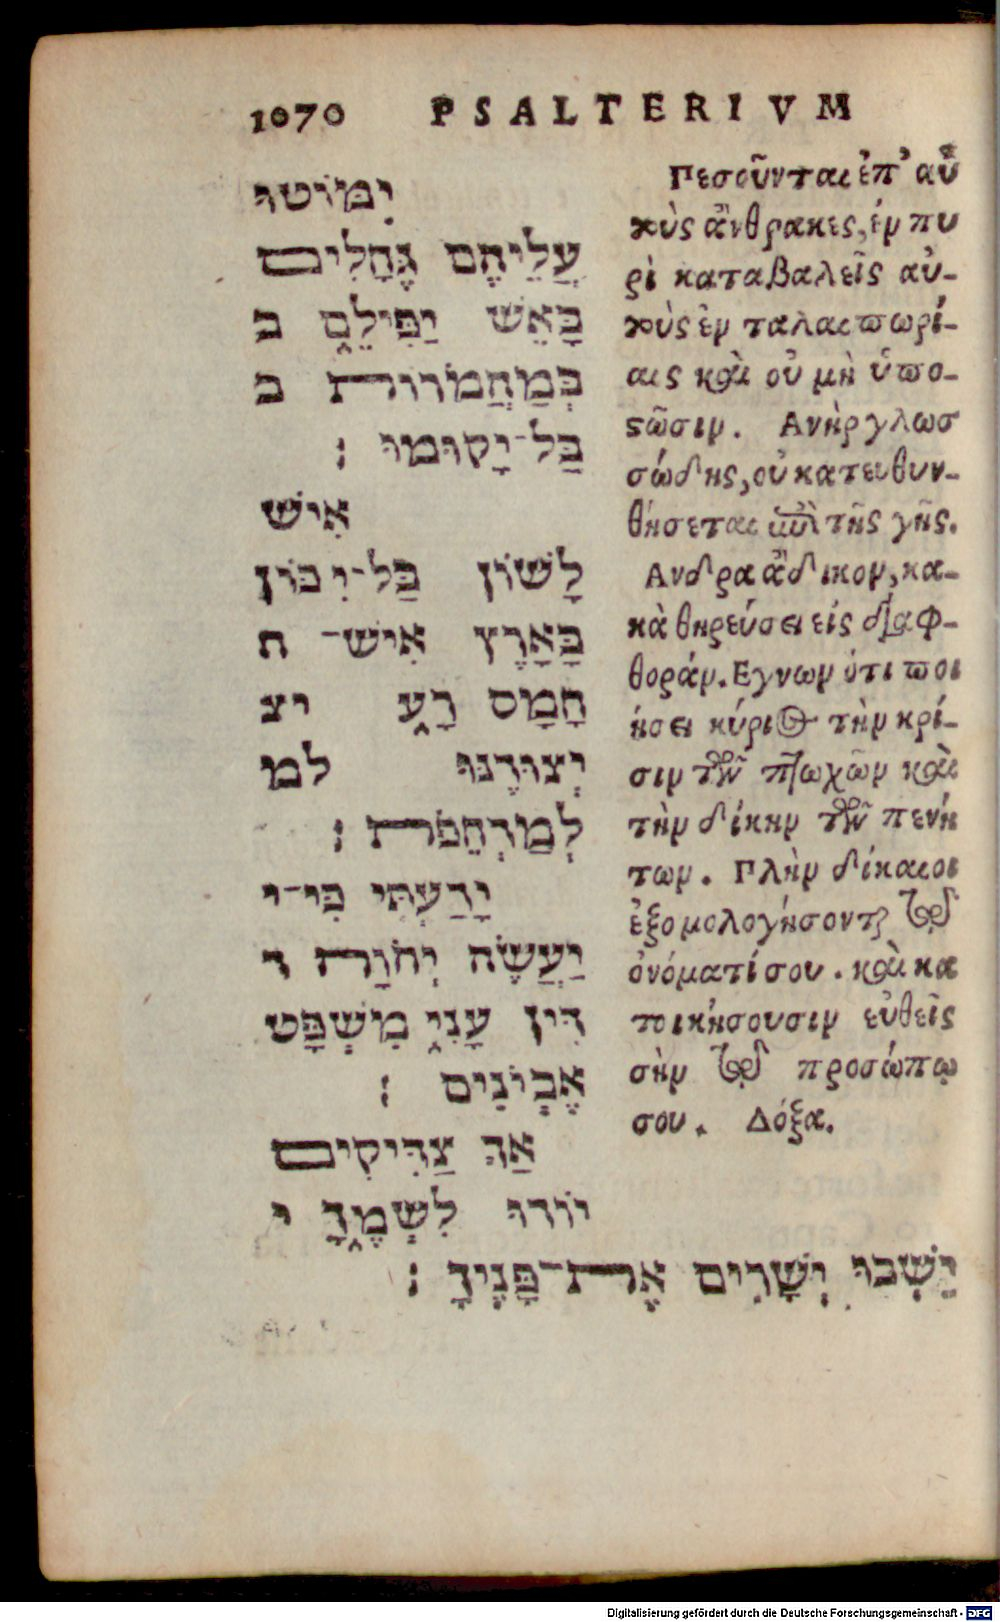 1070 PSALTERIVM
יִמּוֹטוּ
עֲלֵיהֶם גֶּחָלִים
בָּאֵשׁ יַפִּילֵם ב
בְּמַהֲמֹרוֹת ב
בַּל־יָקוּמוּ :
אִישׁ
לָשׁוֹן בַּל־יִכּוֹן
בָּאָרֶץ אִישׁ־ ח
חָמָס רָע יצ
יְצוּדֶנּוּ למ
לְמַדְחֵפֹת :
יָדַעְתִּי כִּי־י
יַעֲשֶׂה יְהוָה ד
דִּין עָנִי מִשְׁפָּט
אֶבְיֹנִים :
אַךְ צַדִּיקִים
יוֹדוּ לִשְׁמֶךָ י
יֵשְׁבוּ יְשָׁרִים אֶת־פָּנֶיךָ :
Πεσοῦνται ἐπ' αὐ
τοὺς ἄνθρακες, ἐν πυ
ρὶ καταβαλεῖς αὐ-
τοὺς ἐν ταλαιπωρί-
αις καὶ οὐ μὴ ὑπο-
στῶσιν. Ανὴρ γλωσ
σώδης, οὐ κατευθυν-
θήσεται ἐπὶ τῆς γῆς.
Ανδρα ἄδικον, κα-
κὰ θηρεύσει εἰς διαφ-
θοράν. Εγνων ὅτι ποι
ήσει κύριος τὴν κρί-
σιν τῶν πτωχῶν καὶ
τὴν δίκην τῶν πενή
των. Πλὴν δίκαιοι
ἐξομολογήσονται τῷ
ὀνόματί σου. καὶ κα
τοικήσουσιν εὐθεῖς
σὴν τῷ προσώπῳ
σου. Δόξα.
Digitalisierung gefördert durch die Deutsche Forschungsgemeinschaft - DFG